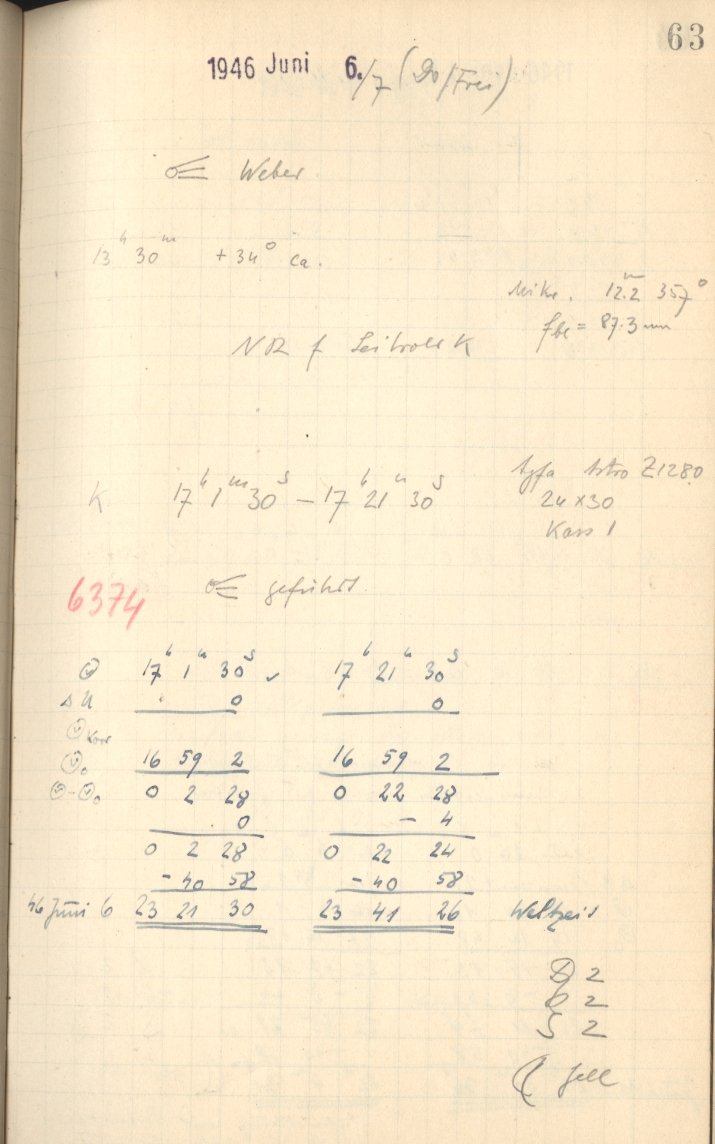 63
1946 Juni 6./7 (Do/Frei)
Weber.
13ʰ 30ᵐ +34° ca.
Mikr. 12.2 357°
fbl = 87.3 mm
K 17ʰ 1ᵐ 30ˢ – 17ʰ 21ᵐ 30ˢ
Agfa Astro Z1280
24 x 30
Kass 1
6374
geführt.
☉ 17ʰ 1ᵐ 30ˢ ✓ 17ʰ 21ᵐ 30ˢ
ΔU 0 0
☉ Korr
☉₀ 16 59 2 16 59 2
☉-☉₀ 0 2 28 0 22 28
0 – 4
0 2 28 0 22 24
-40 58 -40 58
46 Juni 6 23 21 30 23 41 26 Weltzeit
D 2
2
S 2
hell